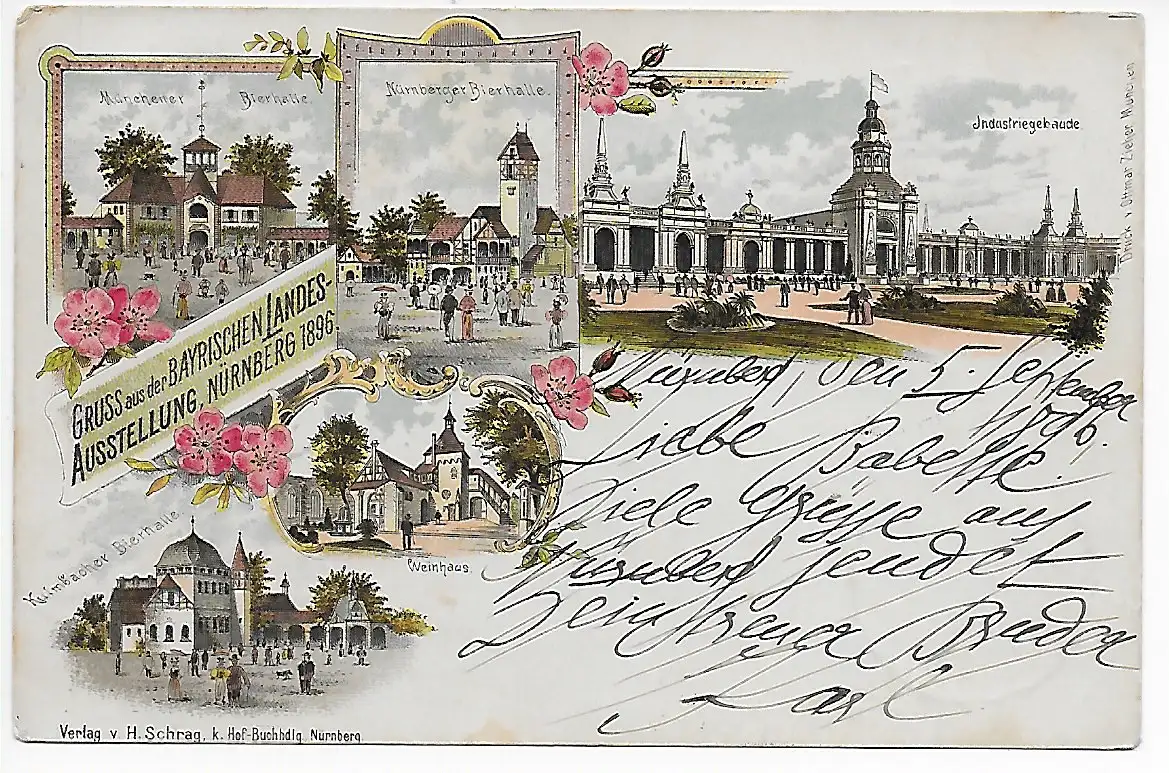 Münchener Bierhalle.
Nürnberger Bierhalle.
Industriegebäude
Druck v. Ottmar Zieher München
GRUSS aus der BAYRISCHEN LANDES-
AUSSTELLUNG, NÜRNBERG 1896.
Weinhaus.
Kulmbacher Bierhalle.
Nürnberg, den 5. September
1896.
Liebe Babette.
Viele Grüsse aus
Nürnberg sendet
Dein Bruder
Karl
Verlag v. H. Schrag, k. Hof-Buchhdlg. Nürnberg.